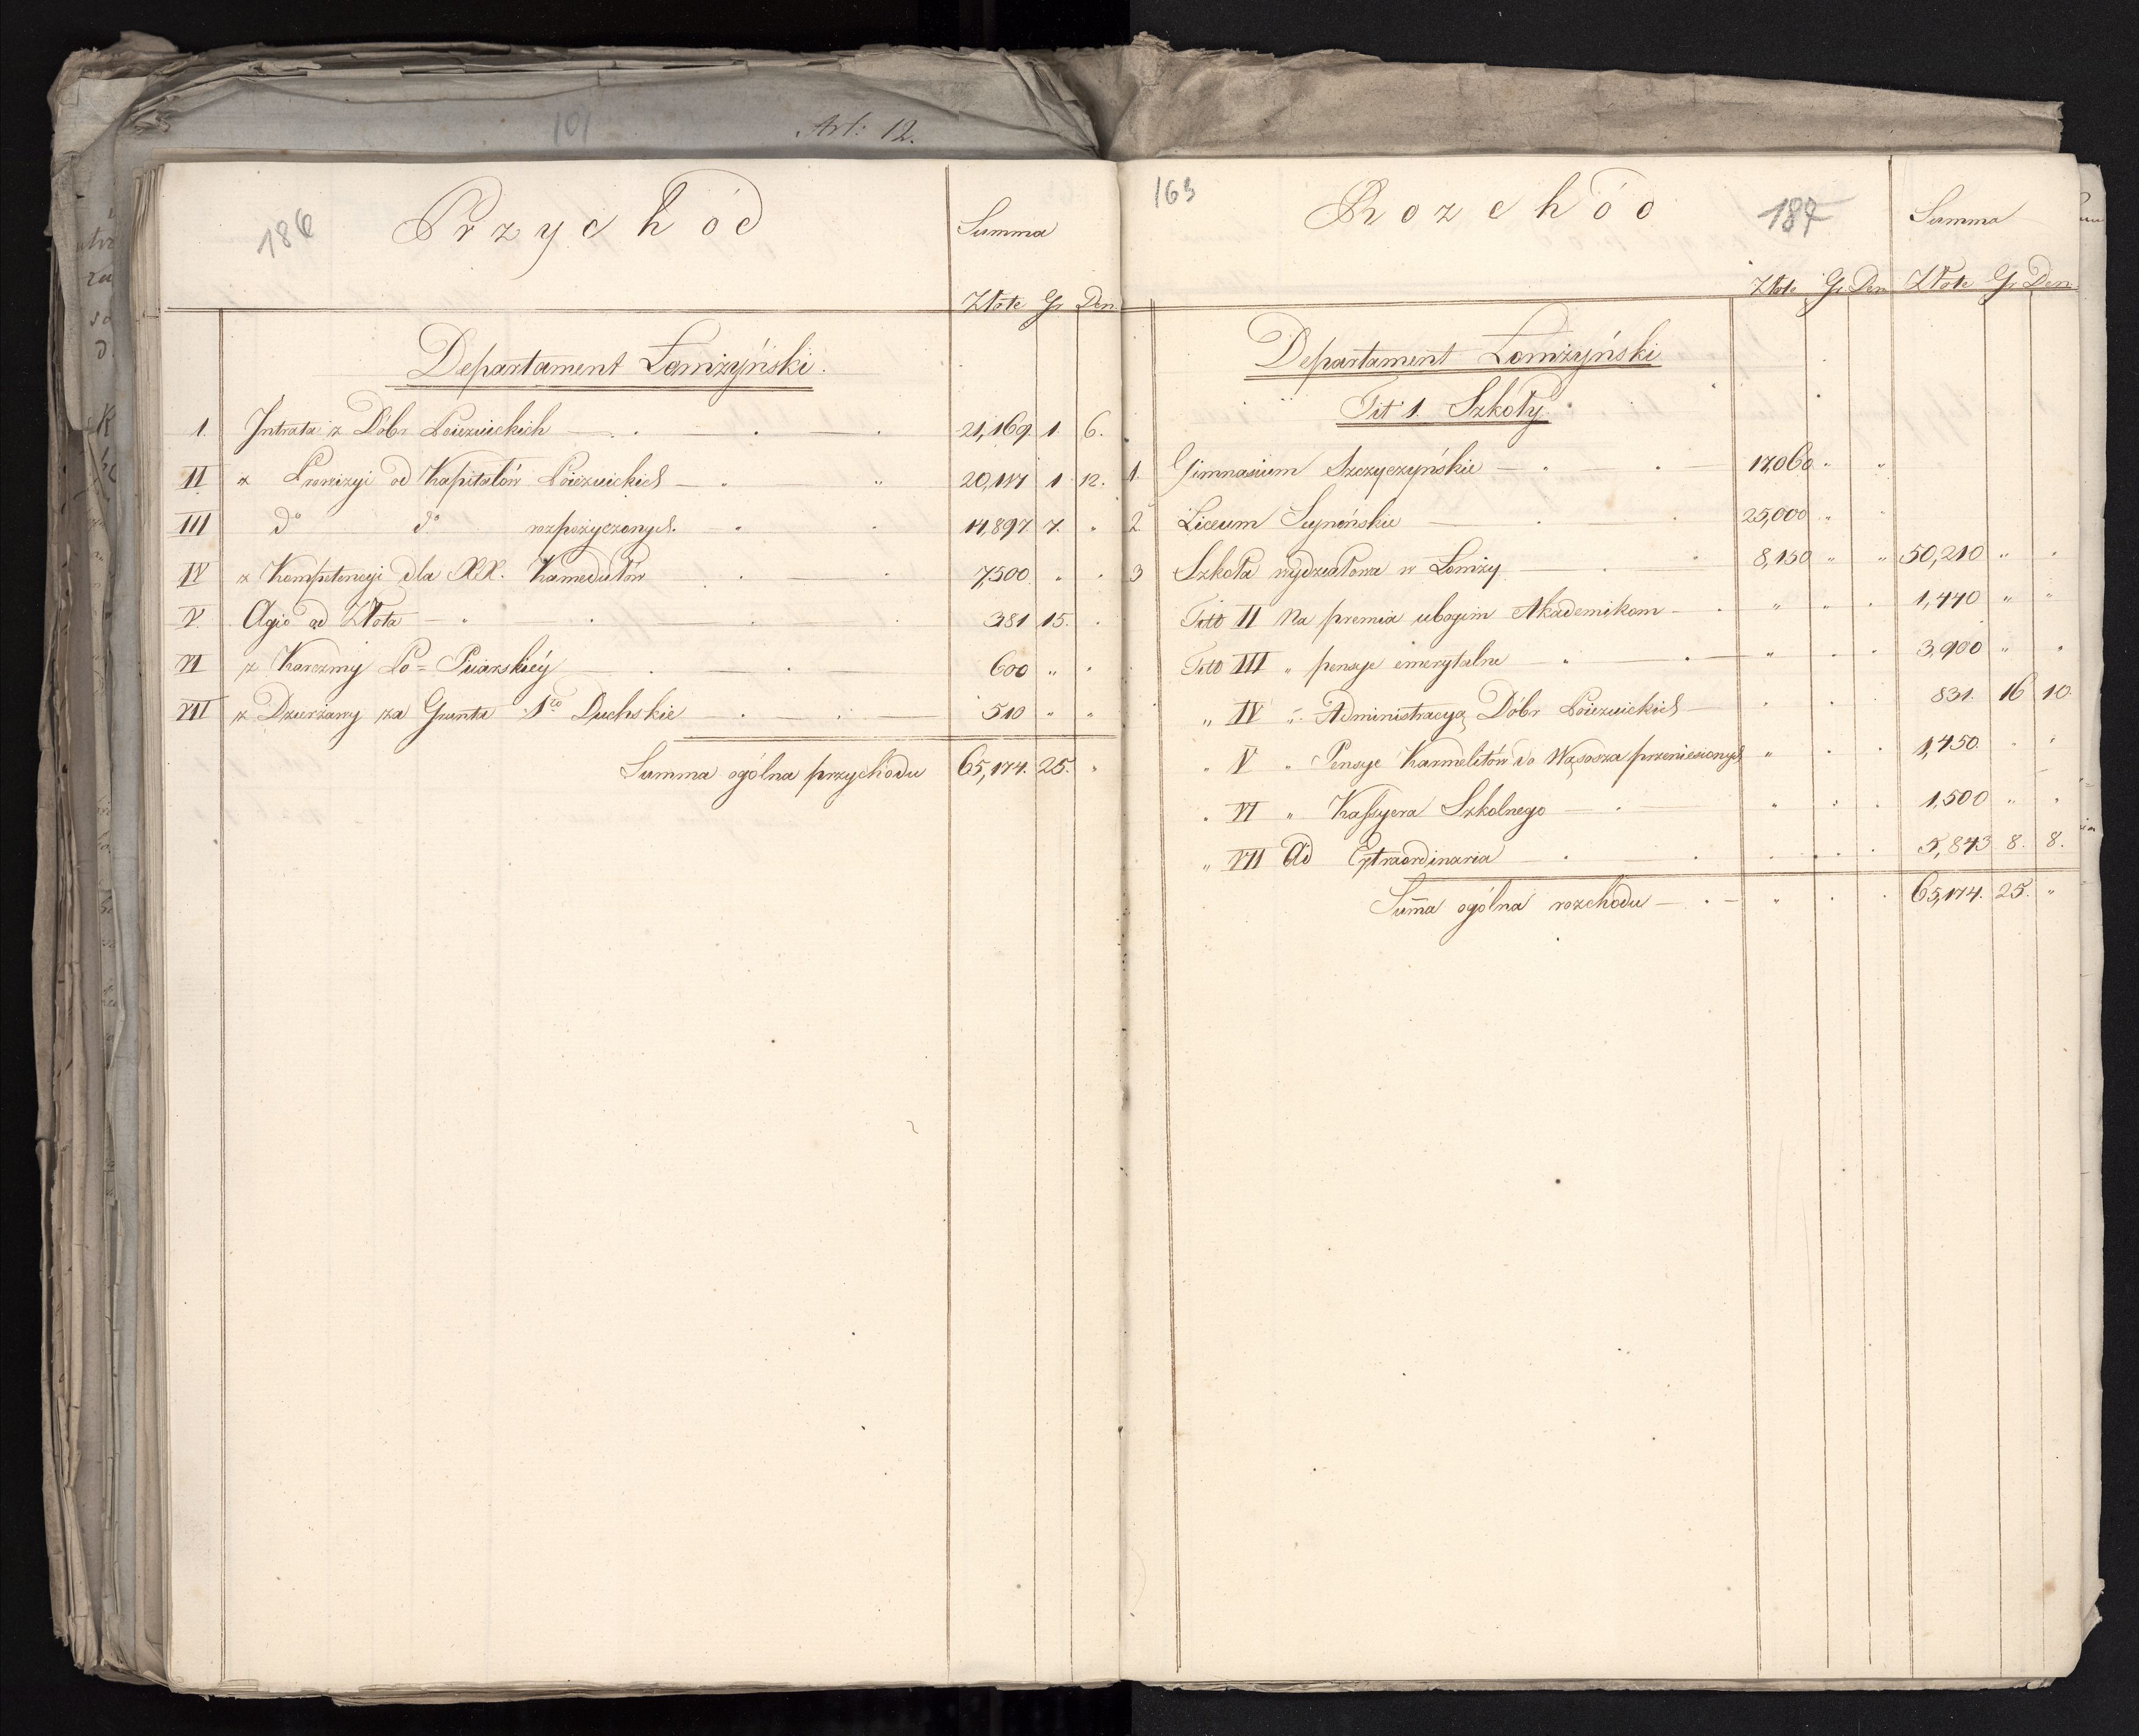 Art: 12.
101
186
Przychód
Summa
Złote Gr Den
Departament Łomżyński.
1. Intrata z Dóbr Poiezuickich 21,169. 1. 6.
II z Prowizyi od Kapitałów Poiezuickich 20,117 1 12.
III do do rozpożyczonych. 14,897 7. "
IV z Kompetencyi dla XX. Kamedułów 7,500 " "
V. Agio od Złota 381 15.
VI z Karczmy Po=Piiarskiéy 600 " "
VII z Dzierżawy za Grunta Sto Duchskie 510 " "
Summa ogólna przychodu 65,174. 25. "
163
Rozchód
187
Summa
Złote Gr Den Złote Gr Den
Departament Łomżyński
Tit 1. Szkoły.
1. Gimnasium Szczyczyńskie 17,060 " "
2. Liceum Seyneńskie 25,000 " "
3 Szkoła wydziałowa w Łomży 8,150 " " 50,210 " "
Titt II Na premia ubogim Akademikom " " " 1,440 " "
Titt III " pensye emerytalne " " " 3,900 " "
" IV " Administracyą Dóbr Poiezuickich 831. 16 10.
" V " Pensye Karmelitów do Wąsosza przeniesionych " 1,450. " "
" VI " Kassyera Szkolnego " 1,500 " "
" VII Ad Extraordinaria 5,843 8. 8.
Suma ogólna rozchodu " 65,174. 25. "